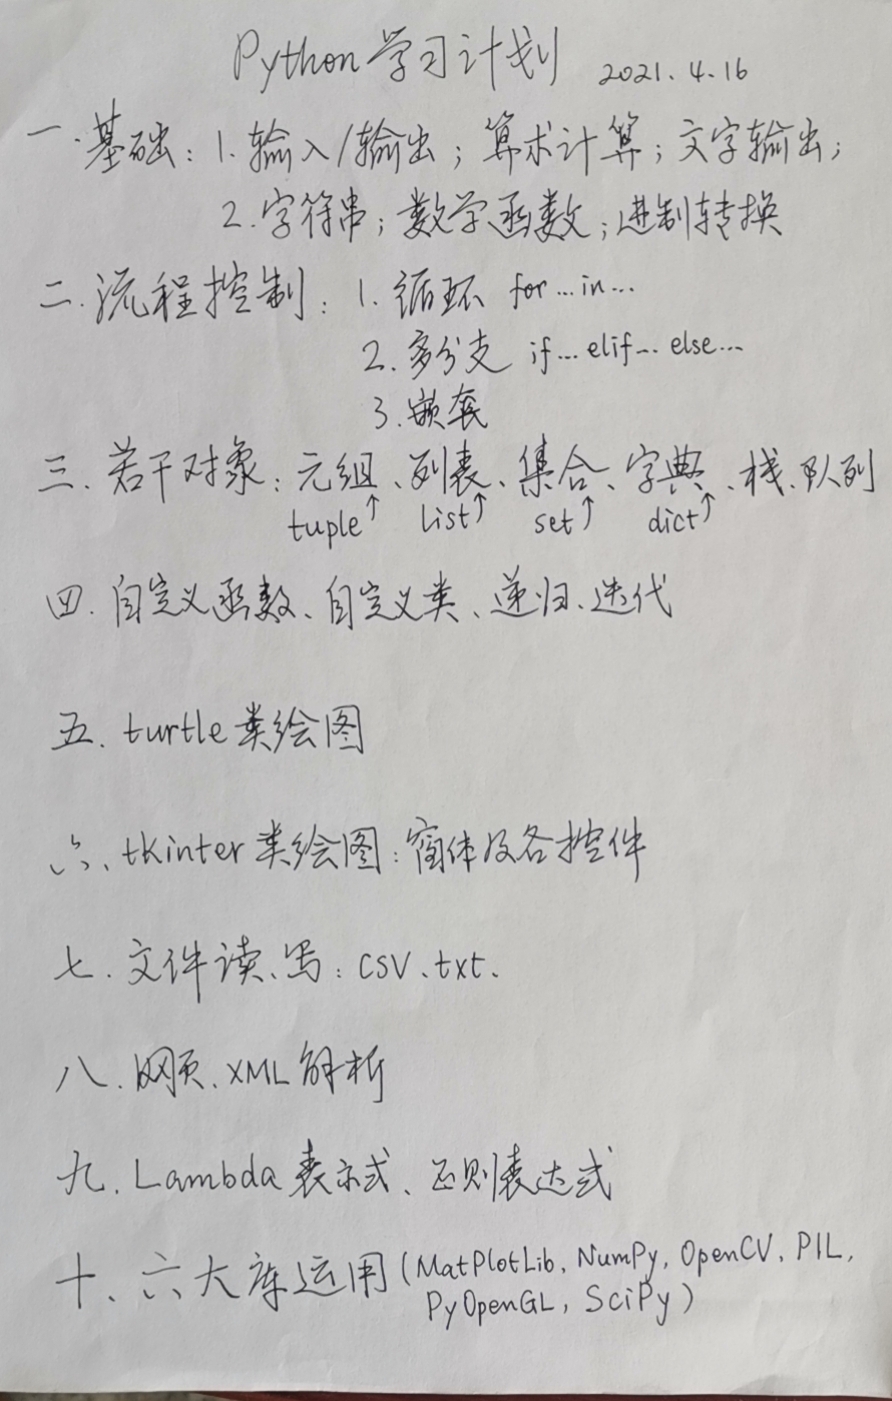 Python学习计划 2021.4.16
一.基础:1.输入/输出;算术计算;文字输出;
2.字符串;数学函数;进制转换
二.流程控制:1.循环 for…in…
2.多分支 if…elif…else…
3.嵌套
三.若干对象:元组、列表、集合、字典、栈、队列
tuple↑ list↑ set↑ dict↑
四.自定义函数、自定义类、递归、迭代
五.turtle类绘图
六、tkinter类绘图:窗体及各控件
七.文件读、写:csv、txt、
八.网页、XML解析
九.Lambda表示式、正则表达式
十、六大库运用(MatPlotLib, NumPy, OpenCV, PIL,
PyOpenGL, SciPy)